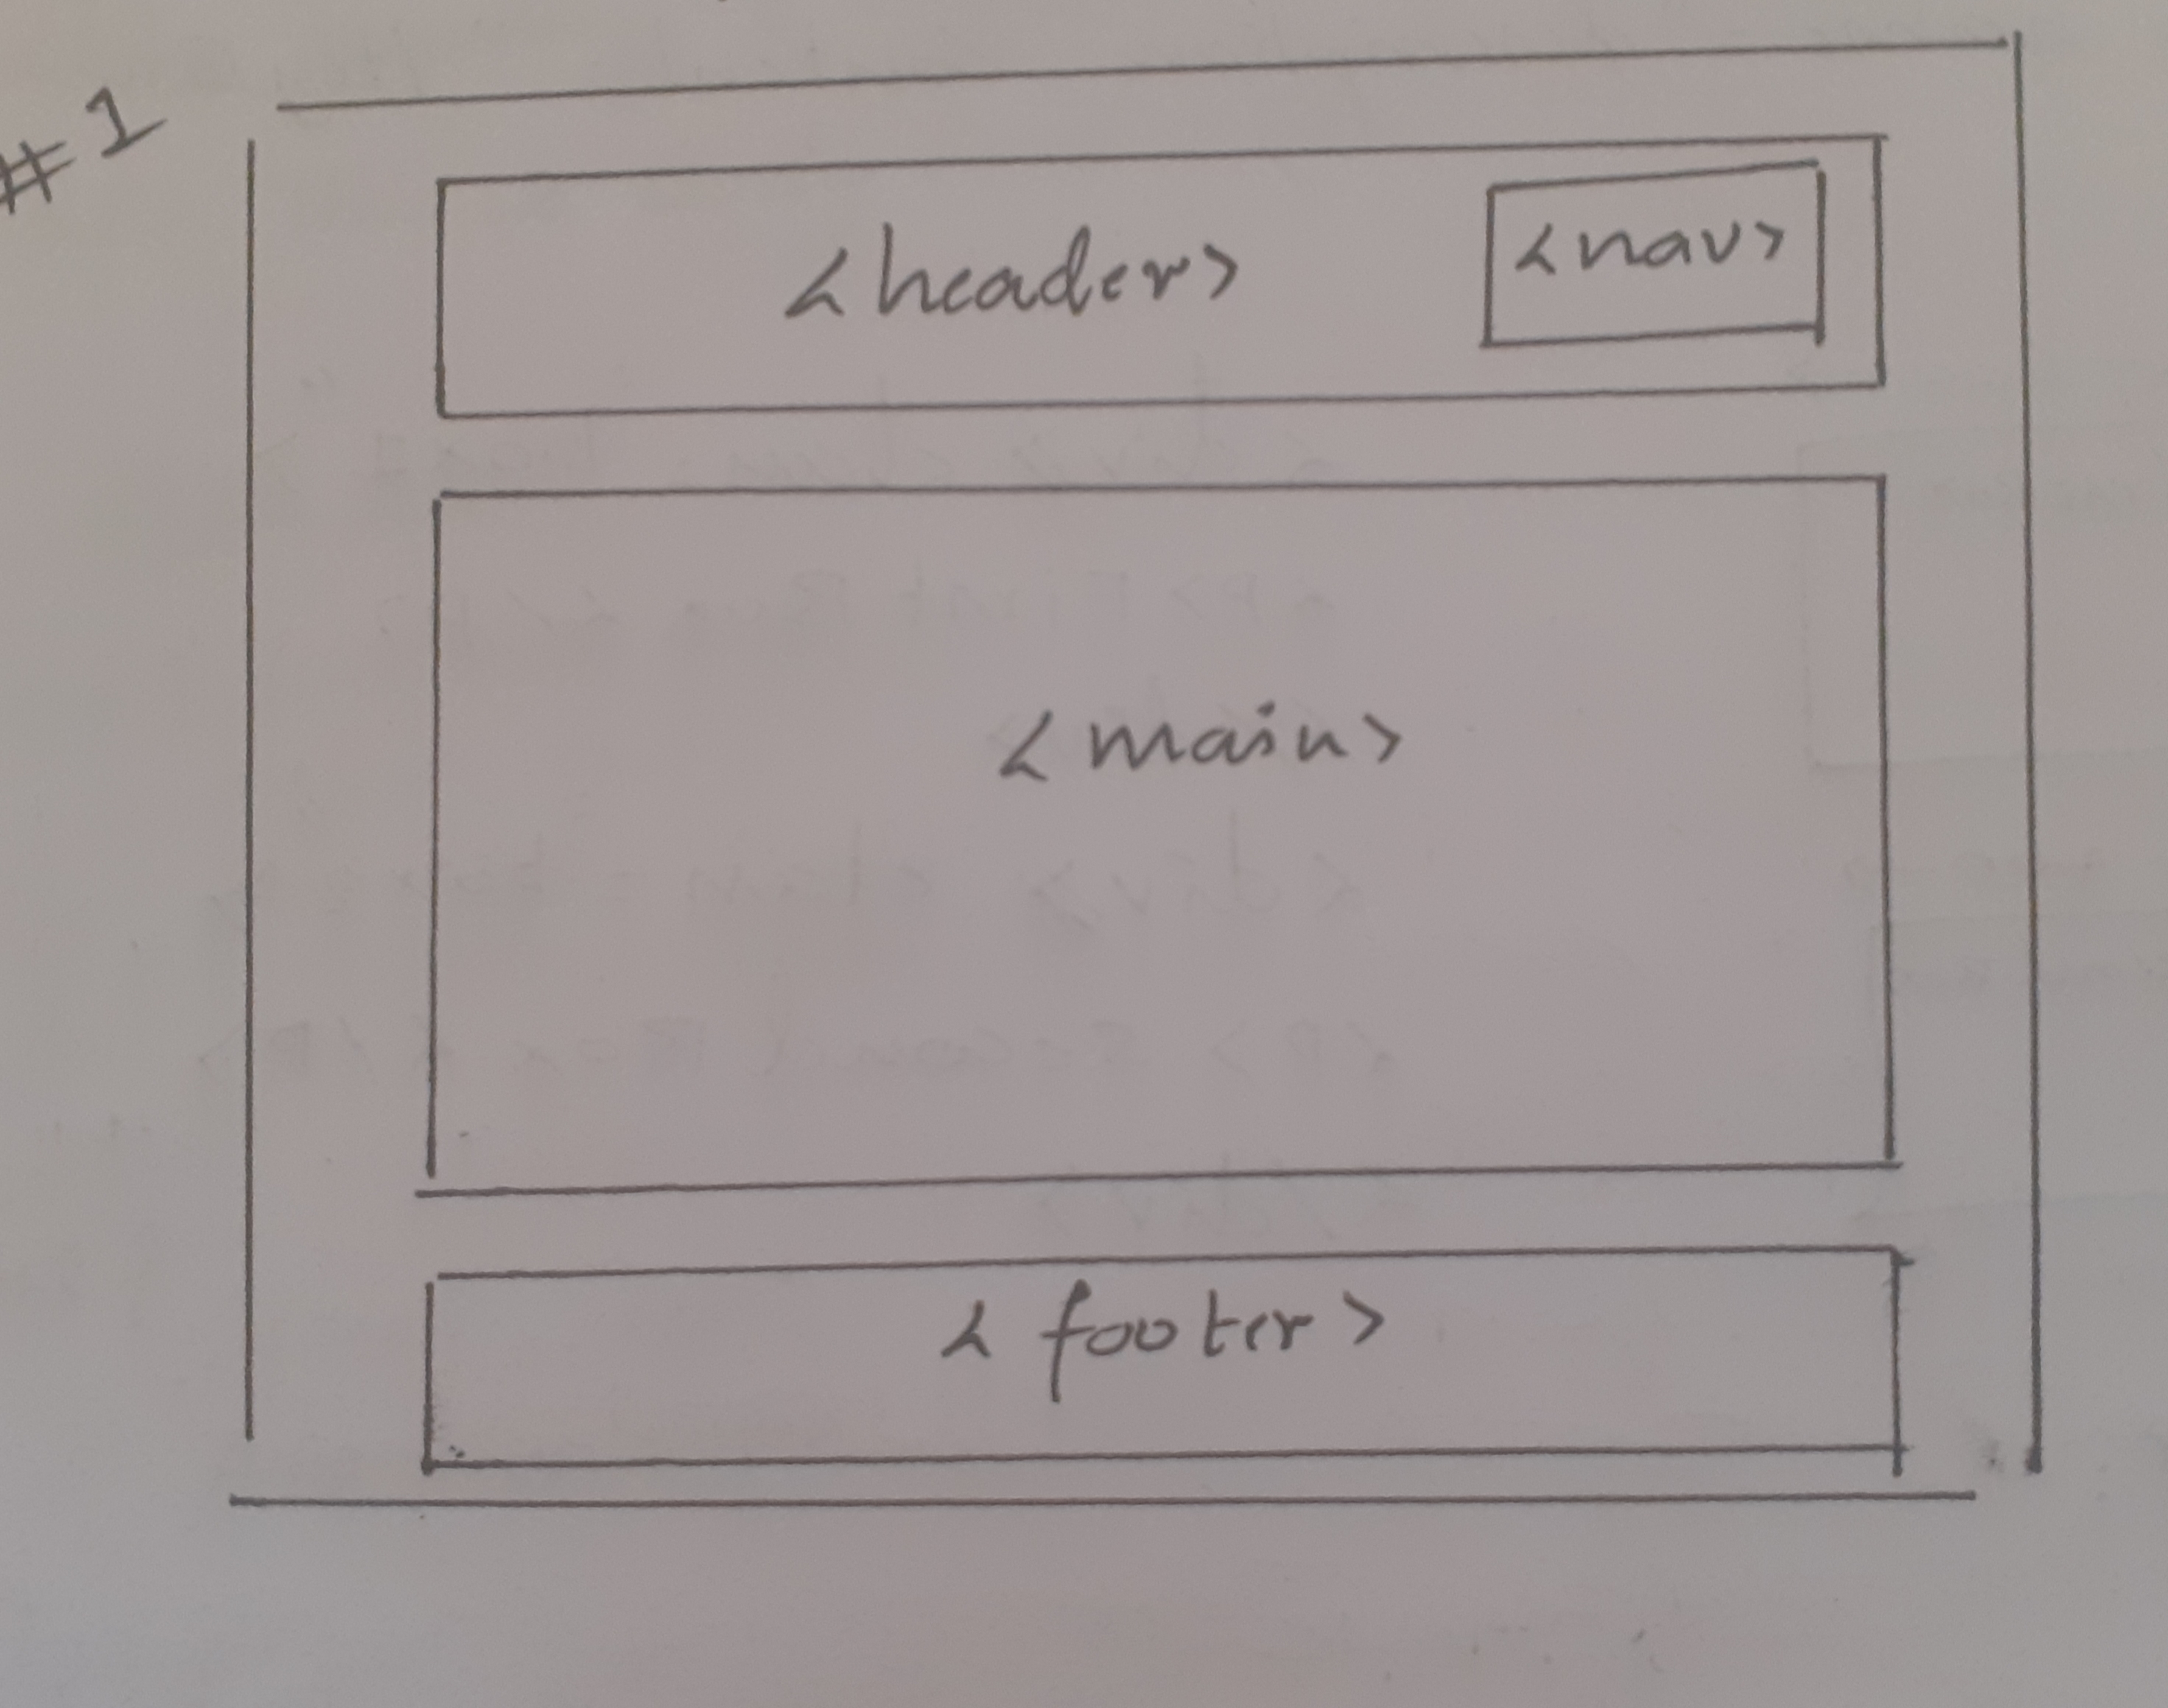 #1
<header>
<nav>
<main>
<footer>